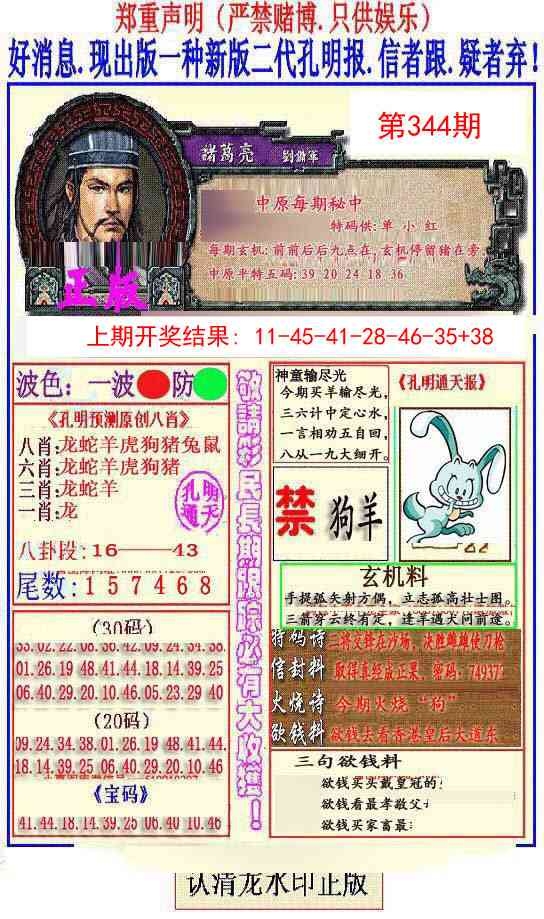 郑重声明（严禁赌博.只供娱乐）
好消息.现出版一种新版二代孔明报.信者跟.疑者弃!
第344期
諸葛亮 劉備軍
中原每期秘中
特码供:单 小 红
每期玄机:前前后后九点在,玄机停留猪在旁
中原平特五码:39 20 24 18 36
正版
上期开奖结果: 11-45-41-28-46-35+38
波色: 一波 防
《孔明预测原创八肖》
八肖:龙蛇羊虎狗猪兔鼠
六肖:龙蛇羊虎狗猪
三肖:龙蛇羊
一肖:龙
孔明通天
八卦段:16——43
尾数:157468
(30码)
33.02.22.08.36.42.09.24.34.38
01.26.19.48.41.44.18.14.39.25
06.40.29.20.10.46.05.23.29.40
(20码)
09.24.34.38.01.26.19.48.41.44.
18.14.39.25.06.40.29.20.10.46
《宝码》
41.44.18.14.39.25.06.40.10.46
敬請彩民長期跟踪必有大收獲！
神童输尽光
今期买羊输尽光,
三六计中定心水,
一言相劝五自回,
八从一九大细开。
《孔明通天报》
禁 狗羊
玄机料
手提弧矢射方偶，立志孤高壮士图。
三箭身云终有定，逢羊遇犬问前途。
特码诗 三将交锋在沙场，决胜雌雄使刀枪
信封料 取得真经成正果，密码：74937
火烧诗 今期火烧“狗”
欲钱料 欲钱去看香港皇后大道东
三句欲钱料
欲钱买买戴皇冠的
欲钱看最孝敬父
欲钱买家畜最
认清龙水印正版